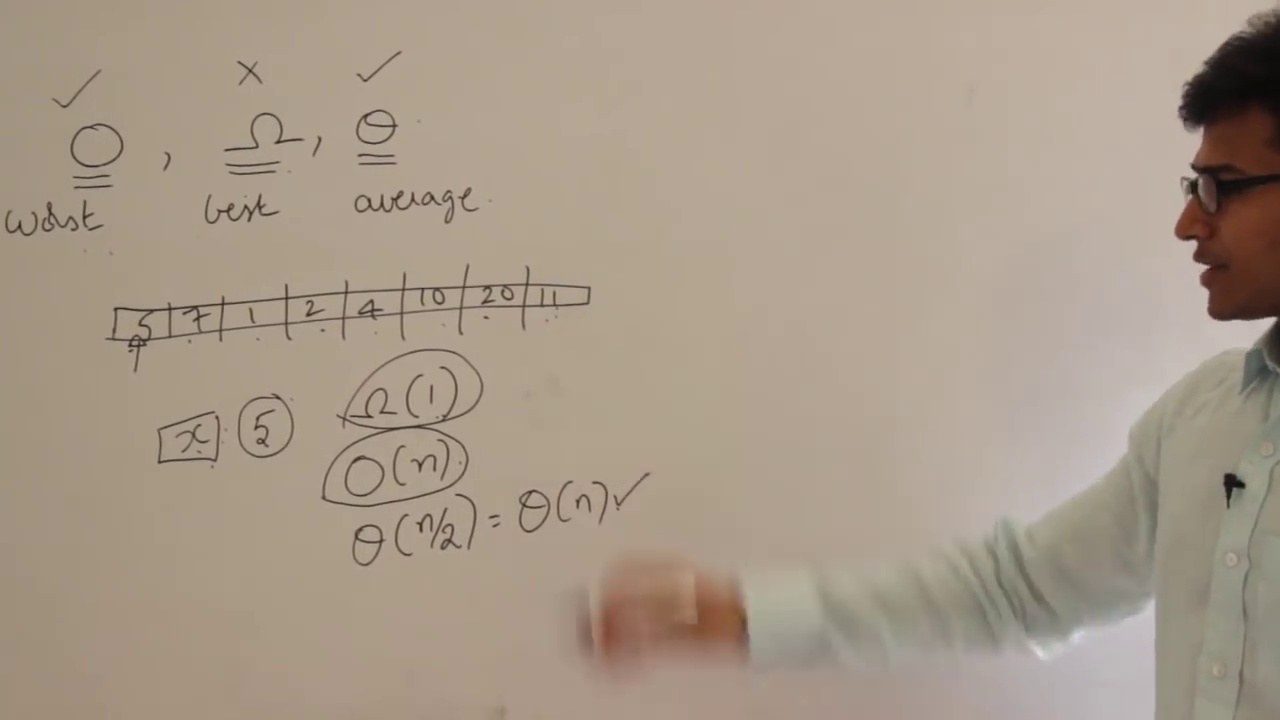 ✓ × ✓
O , Ω , θ
worst best average.
5 7 1 2 4 10 20 11
x : 5 Ω(1)
O(n)
θ(n/2) = θ(n) ✓